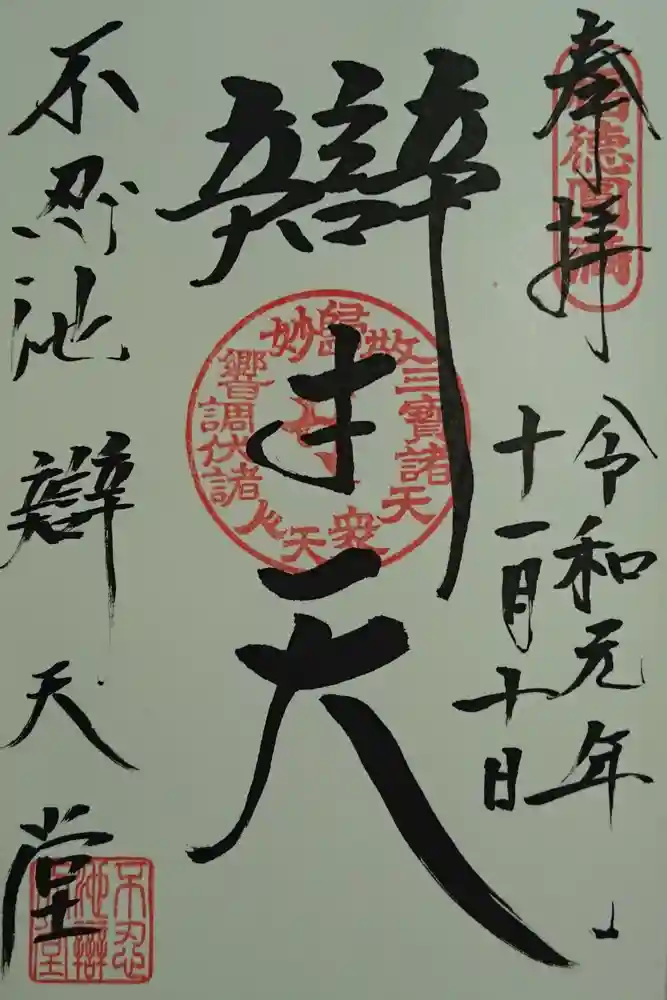 奉拝
令和元年
十一月十日
辯才天
不忍池
辯天堂
帰敬三寶諸天衆
妙響調伏諸天人
不忍
池辯
天堂